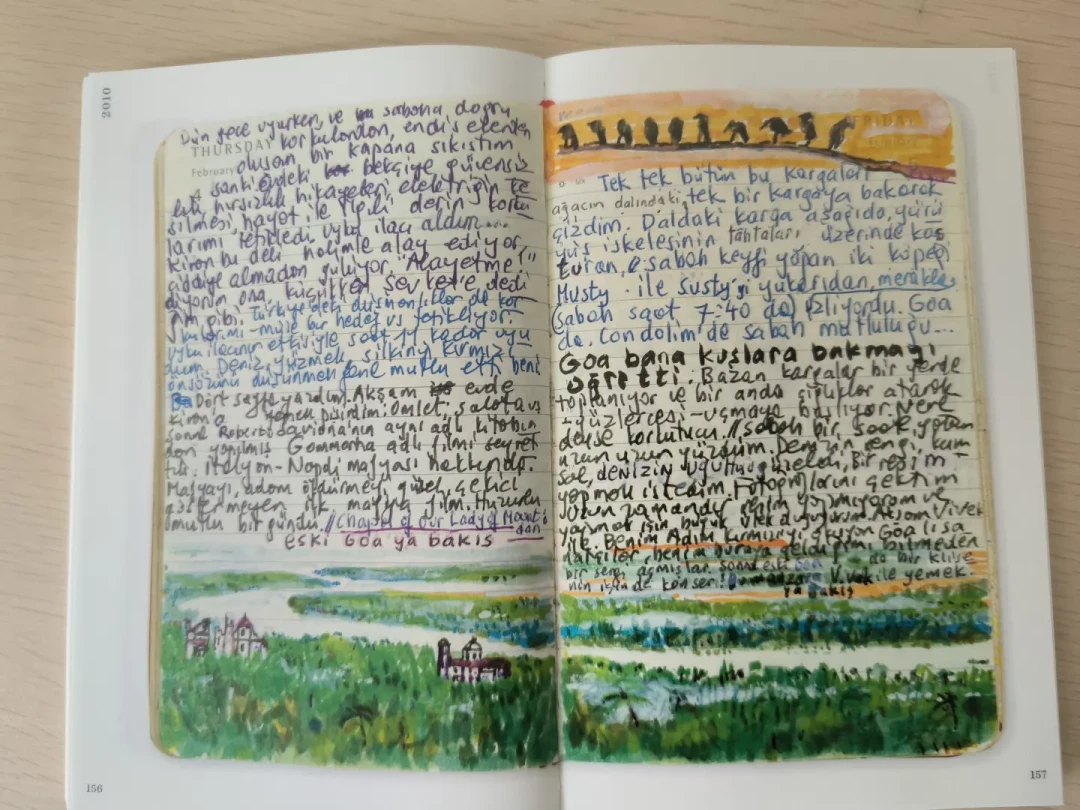 2010
THURSDAY
February
Dün gece uyurken, ve sabaha doğru
korkulardan, endişelerden
oluşan bir kapana sıkıştım
sanki. Evdeki bekçiye güvensiz
hırsızlık hikayeleri, elektriğin ke
silmesi, hayat ile ilgili derin korku
larımı tetikledi. uyku ilacı aldım...
Kiran bu deli halimle alay ediyor,
ciddiye almadan gülüyor. "Alay etme!"
diyorum ona küçükken Şevket'e dedi
ğim gibi. Türkiye'deki düşmanlıklar da kor
kularımı -muşe bir hedef vs tetikliyor.
Uyku ilacının etkisiyle saat 11'e kadar uyu
dum. Deniz, yüzmek, silkiniş Kırmızı
önsözünü düşünmek mutlu etti beni
Dört sayfa yazdım. Akşam evde
Kiran'a yemek pişirdim: Omlet, salata vs
Sonra Roberto Saviano'nun aynı adlı kitabın
dan yapılmış Gommorha adlı filmi seyret
tik. İtalyan-Napoli mafyası hakkında.
Mafyayı, adam öldürmeyi, güzel, çekici
göstermeyen ilk mafya film. Huzurlu
mutlu bir gündü. // Chapel of our Lady of Mount'
dan
eski Goa ya bakış
156
FRIDAY
Tek tek bütün bu kargaları
ağacın dalındaki, tek bir kargaya bakarak
çizdim. Daldaki karga aşağıda, yürü
yüş iskelesinin tahtaları üzerinde koş
turan, sabah keyfi yapan iki köpeği
Musty ile Susty'yi yukarıdan, merakla
(sabah saat 7:40 da) izliyordu. Goa
da, Condolim'de sabah mutluluğu...
Goa bana kuşlara bakmayı
öğretti. Bazan kargalar bir yerde
toplanıyor ve bir anda çığlıklar atarak
-yüzlercesi- uçmaya başlıyor. Nere
deyse korkutucu. // Sabah bir saat yattan
uzun uzun yüzdüm. Denizin rengi, kum
sal, denizin uğultusu güzeldi, Bir resim
yapmak istedim. Fotoğraflarını çektim
Uzun zamandır resim yapmıyorum ve
yapmak için büyük istek duyuyorum. Akşam Vivek
ile Benim Adım Kırmızı'yı okuyan Goa lısa
natçılar, benim buraya geldiğimi bilmeden
bir sergi açmışlar, sonra eski Goa da bir kilise
nin içinde konser: manzara Vivek ile yemek.
ya bakış
157